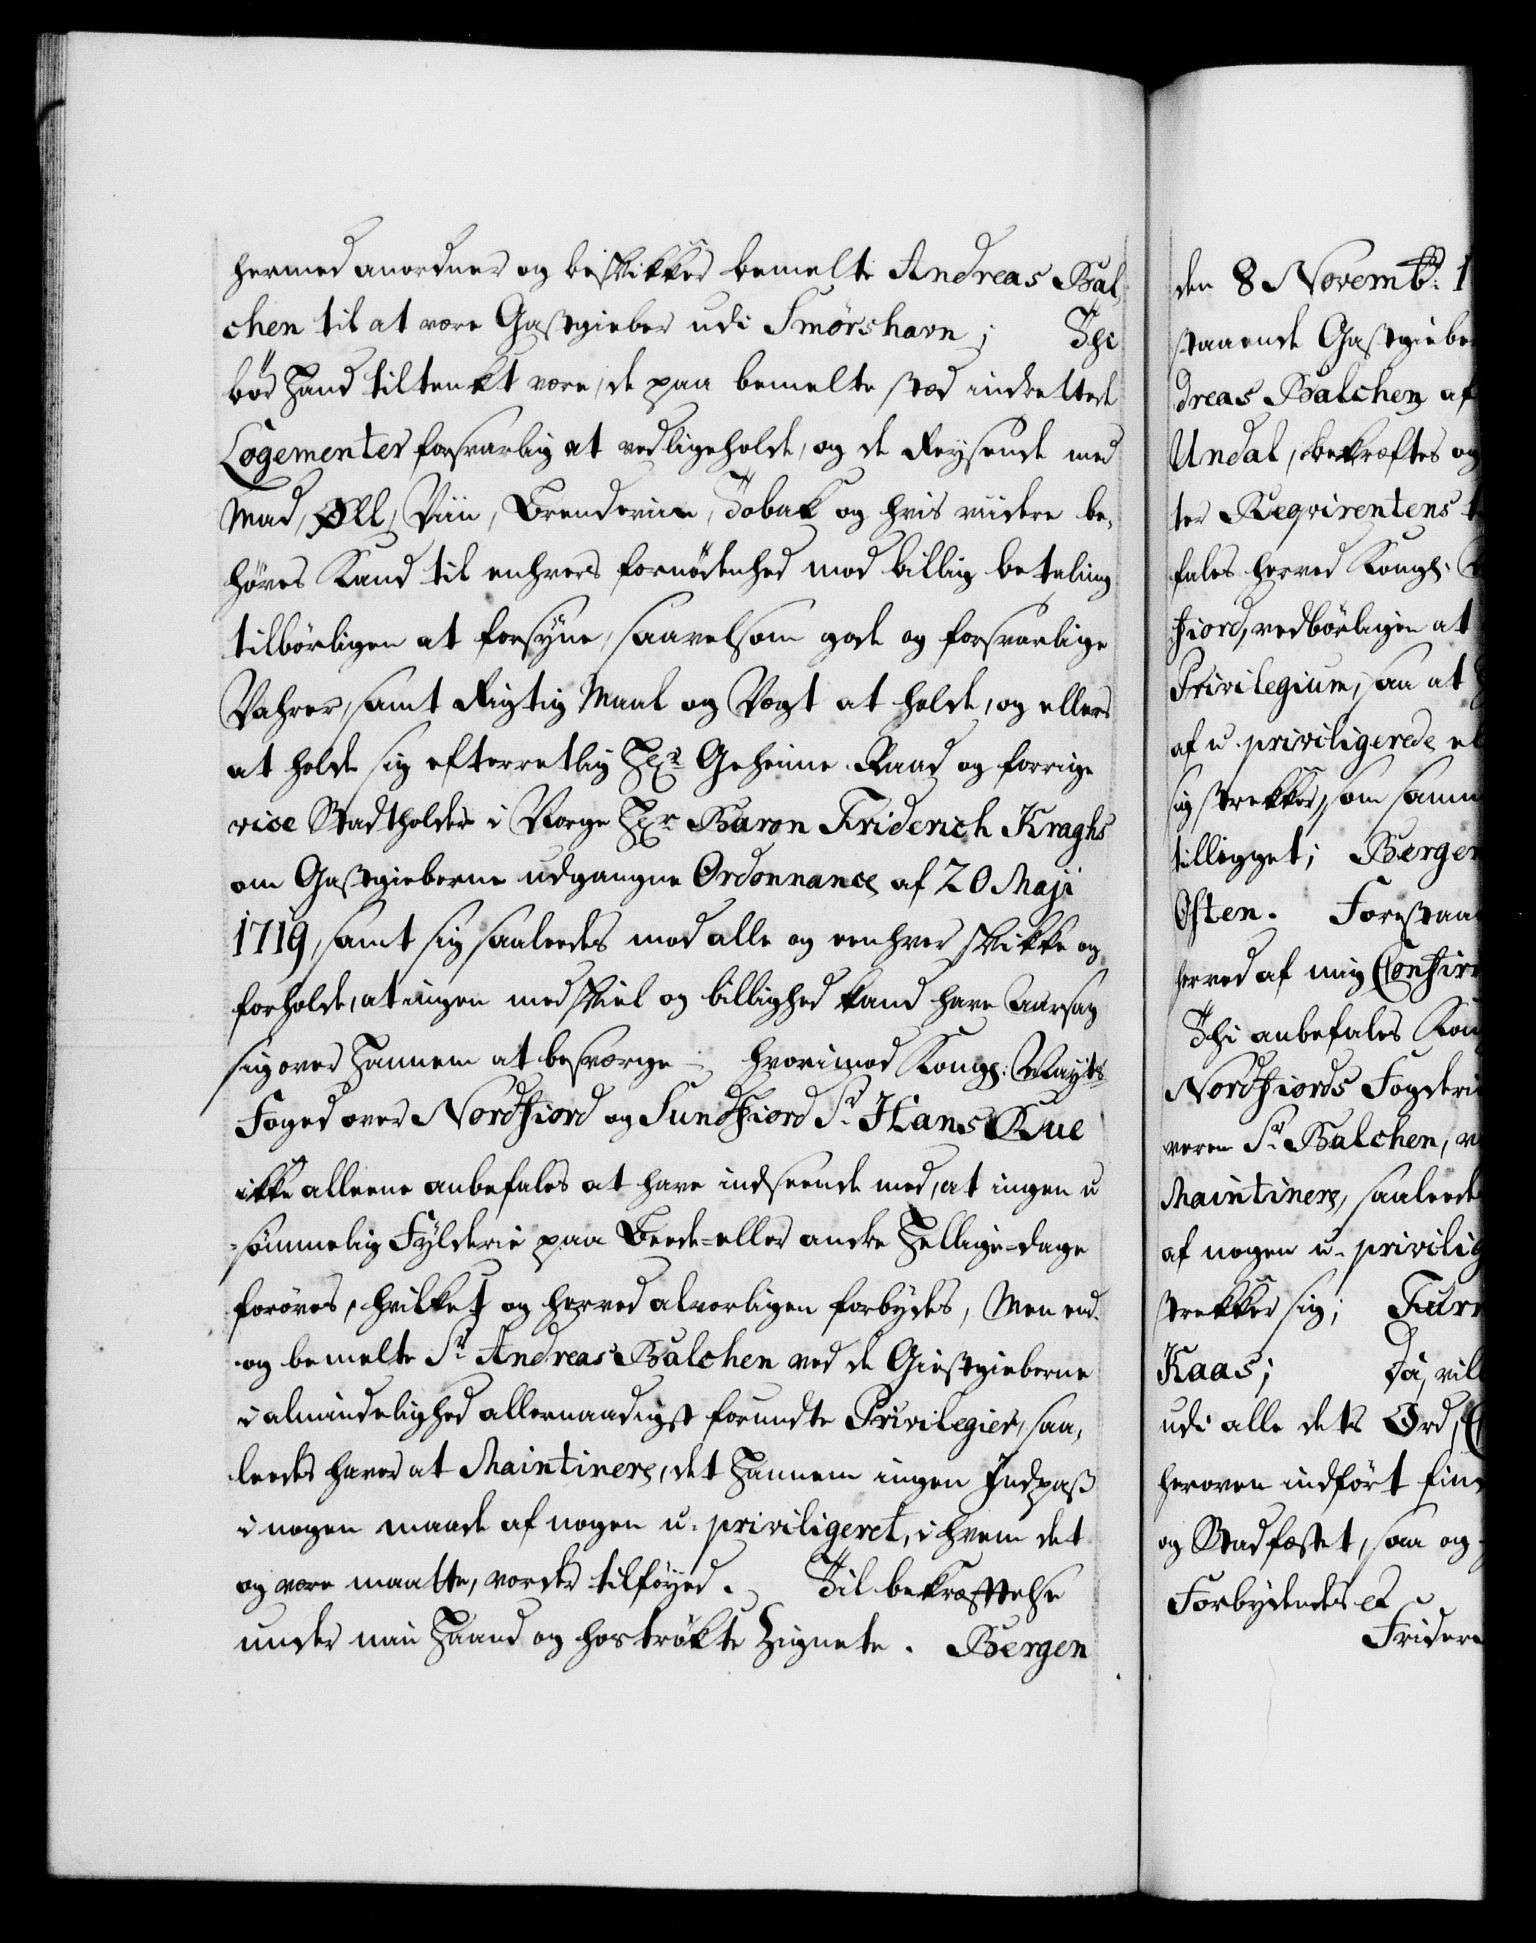 hermed anordner og beskikker bemelte Andreas Bal,
chen til at vere Gastgieber udi Smørshavn; Thi
bør Hand tiltenkt vere, de paa bemelte stæd indrettede
Logementer forsvarlig at vedligeholde, og de Reysende med
Mad, Øll, Viin, Brendeviin, Tobak og hvis viidere be,
høves Kand til enhvers fornødenhed mod billig betaling
tilbørligen at forsyne, saavelsom gode og forsvarlige
Vahrer, samt Rigtig Maal og Vegt at holde, og ellers
at holde sig efterretlig Hr. Geheime Raad og forrige
vice Stadtholder i Norge Hr. Baron Friderich Kraghs
om Gastgieberne udgangne Ordonnance af 20 Maji
1719, samt sig saaledes mod alle og eenhver skikke og
forholde, at ingen med skiel og billighed kand have Aarsag
sig over Hannem at besverge; hvorimod Kongl: Mayts
Foged over Nordfiord og Sundfiord Sr. Hans Rue
ikke alleene anbefales at have indseende med, at ingen u
=sømmelig Fylderie paa Beede= eller andre Hellige=dage
forøves, hvilket og herved alvorligen forbydes, Men end.
og bemelte Sr. Andreas Balchen ved de Giestgieberne
i almindelighed allernaadigst forundte Privilegier, saa,
leedes haver at Maintinere, det Hannem ingen Indpass
i nogen maade af nogen u-priviligeret, i hvem det
og vere maatte, vorder tilføyed. Til bekræftelse
under min Haand og hostrøkte Zignete. Bergen
den 8 Novembr: 1
staaende Gastgieber
dreas Balchen af
Undal, bekræftes og
ter Reqvirentens
fales herved Kongl.
fiord, vedbørligen at
Privilegium, saa at
af u-priviligerede el
sig strekker, som samm
tillegget; Bergen
Osten. Forestaa
herved af mig Confir
Thi anbefales Kon
Nordfiords Fogderi
veren Sr. Balchen, v
Maintinere, saaleede
af nogen u-privilig
strekker sig;
Kaas; Da, vill
udi alle dets Ord,
heroven indført find
og Stadfæstet, saa og
Forbydendes &
Frider